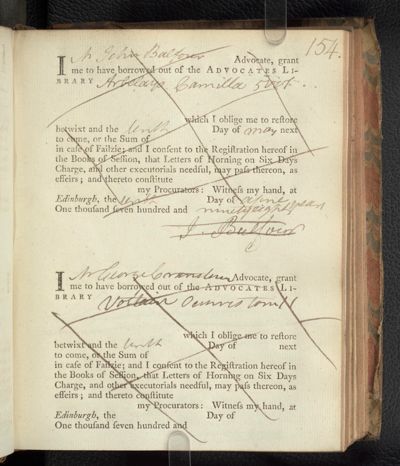 154.
I Mr John Balfour Advocate, grant
me to have borrowed out of the ADVOCATES LI-
BRARY Camilla 5 vol
which I oblige me to reſtore
betwixt and the tenth Day of may next
to come, or the Sum of
in caſe of Failzie; and I conſent to the Regiſtration hereof in
the Books of Seſſion, that Letters of Horning on Six Days
Charge, and other executorials needful, may paſs thereon, as
effeirs; and thereto conſtitute
my Procurators: Witneſs my hand, at
Edinburgh, the tenth Day of
One thouſand ſeven hundred and ninety eight years
J. Balfour
I Mr George Cranstoun Advocate, grant
me to have borrowed out of the ADVOCATES LI-
BRARY Voltair Oeuvres tom 11
which I oblige me to reſtore
betwixt and the tenth Day of next
to come, or the Sum of
in caſe of Failzie; and I conſent to the Regiſtration hereof in
the Books of Seſſion, that Letters of Horning on Six Days
Charge, and other executorials needful, may paſs thereon, as
effeirs; and thereto conſtitute
my Procurators: Witneſs my hand, at
Edinburgh, the Day of
One thouſand ſeven hundred and